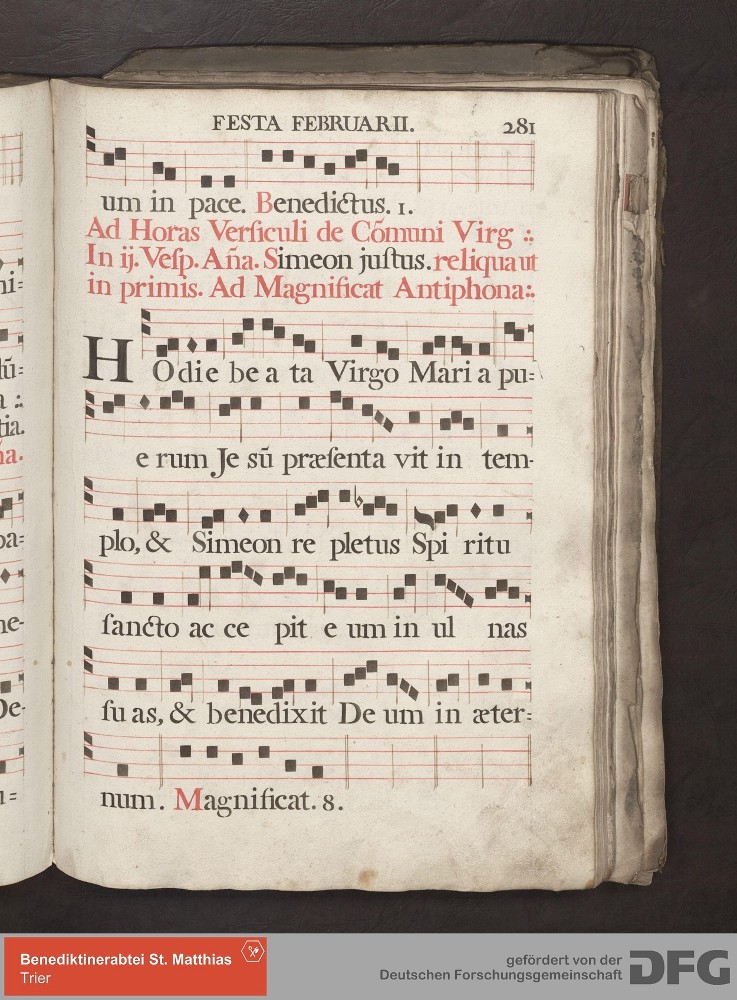 FESTA FEBRUARII. 281
um in pace. Benedictus. 1.
Ad Horas Verſiculi de Cõmuni Virg :.
In ij. Veſp. Aña. Simeon juſtus. reliqua ut
in primis. Ad Magnificat Antiphona:.
HOdie be a ta Virgo Mari a pu=
e rum Je sũ præſenta vit in tem-
plo, & Simeon re pletus Spi ritu
ſancto ac ce pit e um in ul nas
ſu as, & benedixit De um in æter=
num. Magnificat. 8.
ni=
lũ=
a :.
tia.
ña.
pa=
ne-
De-
Benediktinerabtei St. Matthias
Trier
gefördert von der
Deutschen Forschungsgemeinschaft
DFG